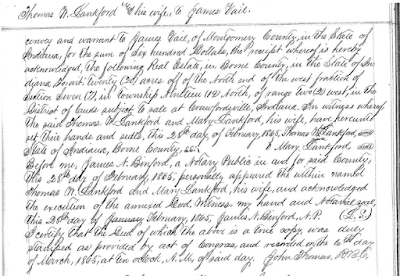 Thomas N. Lankford & his wife, to James Vail.
convey and warrant to James Vail, of Montgomery County, in the State of
Indiana, for the sum of Six hundred Dollars, the receipt whereof is hereby
acknowledged, the following Real Estate, in Boone County, in the State of In-
diana, to wit: twenty (20) acres off of the North end of the west fraction of
Section Seven (7), in township Nineteen (19) North, of range two (2) west, in the
District of lands subject to sale at Crawfordsville, Indiana. In witness whereof
the said Thomas N. Lankford and Mary Lankford, his wife, have hereunto
set their hands and seals, this 28th day of February, 1865. Thomas N. Lankford, seal
State of Indiana, Boone County, ss: Mary Lankford, seal
Before me, James N. Binford, a Notary Public in and for said County,
this 28th day of February, 1865, personally appeared the within named
Thomas N. Lankford and Mary Lankford, his wife, and acknowledged
the execution of the annexed Deed. Witness my hand and Notarial seal,
this 28th day of January February, 1865. James N. Binford, N.P. (L.S.)
I certify that the Deed of which the above is a true copy, was duly
stamped as provided by act of Congress, and recorded on the 6th day
of March, 1865, at Ten o'clock, A.M. of said day. John Thomas, R.B.C.